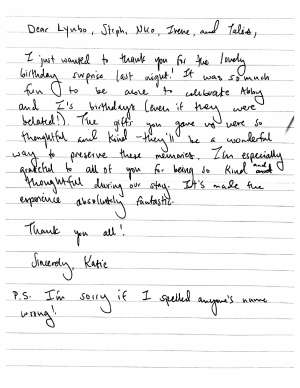 Dear Lyubo, Steph, Niko, Irene, and Tales,
I just wanted to thank you for the lovely
birthday surprise last night! It was so much
fun to be able to celebrate Abby
and I's birthdays (even if they were
belated!). The gifts you gave us were so
thoughtful and kind - they'll be a wonderful
way to preserve these memories. I'm especially
grateful to all of you for being so kind and
thoughtful during our stay. It's made the
experience absolutely fantastic.
Thank you all!
Sincerely, Katie
P.S. I'm sorry if I spelled anyone's name
wrong!